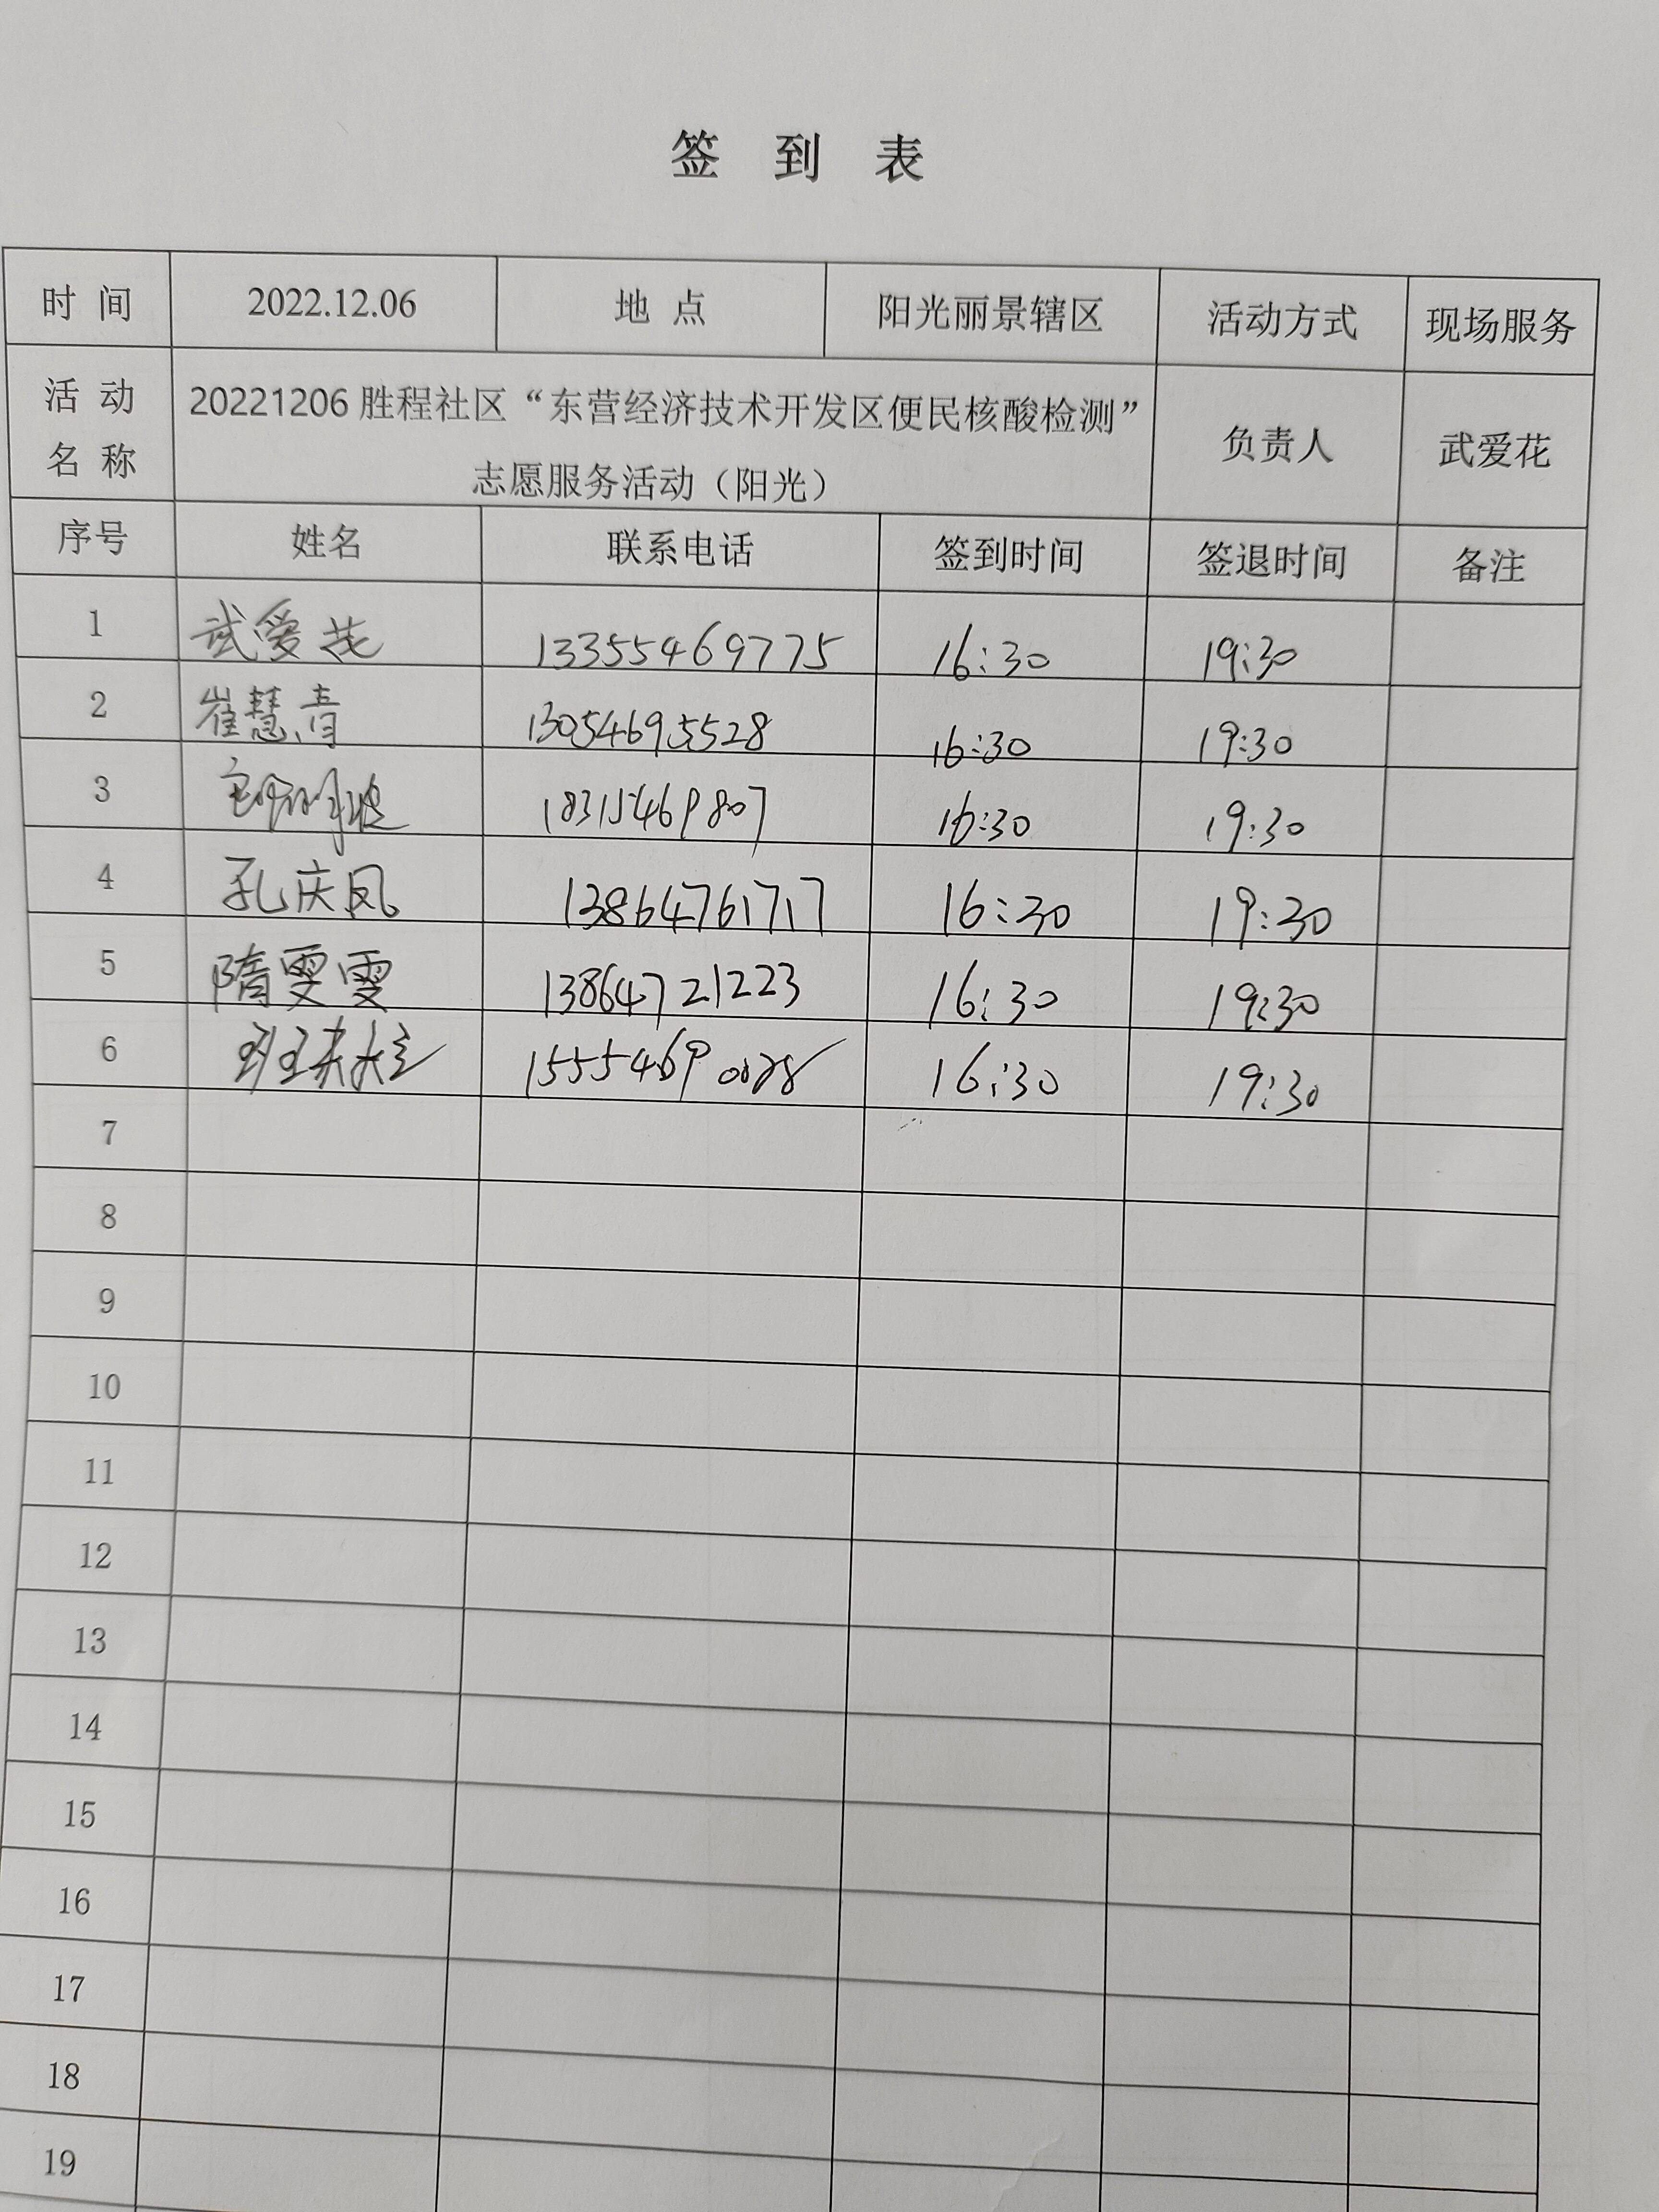 签 到 表
时 间 2022.12.06 地 点 阳光丽景辖区 活动方式 现场服务
活 动 名 称 20221206 胜程社区“东营经济技术开发区便民核酸检测” 负责人 武爱花
志愿服务活动（阳光）
序号 姓名 联系电话 签到时间 签退时间 备注
1 武爱花 13355469775 16:30 19:30
2 崔慧青 13054695528 16:30 19:30
3 18315469807 16:30 19:30
4 孔庆凤 13864761717 16:30 19:30
5 隋雯雯 13864721223 16:30 19:30
6 16:30 19:30
7
8
9
10
11
12
13
14
15
16
17
18
19